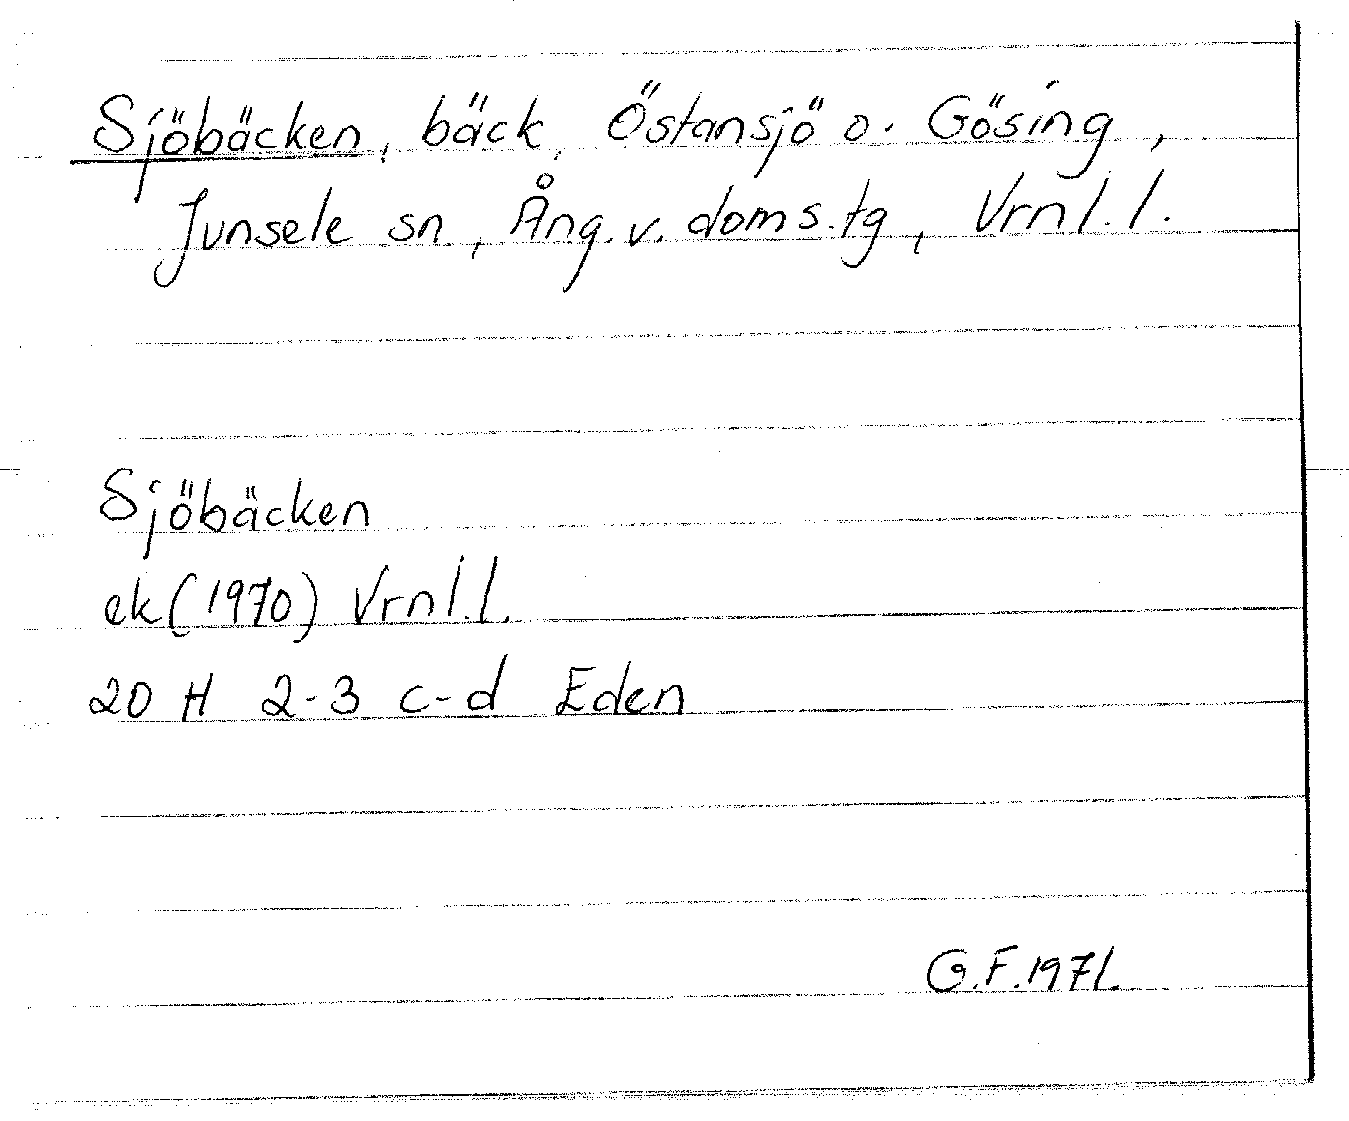 Sjöbäcken, bäck, Östansjö o. Gösing,
Junsele sn, Ång. v. doms.tg, Vrnl.l.
Sjöbäcken
ek (1970) Vrnl.l.
20 H 2-3 c-d Eden
G.F. 1971.